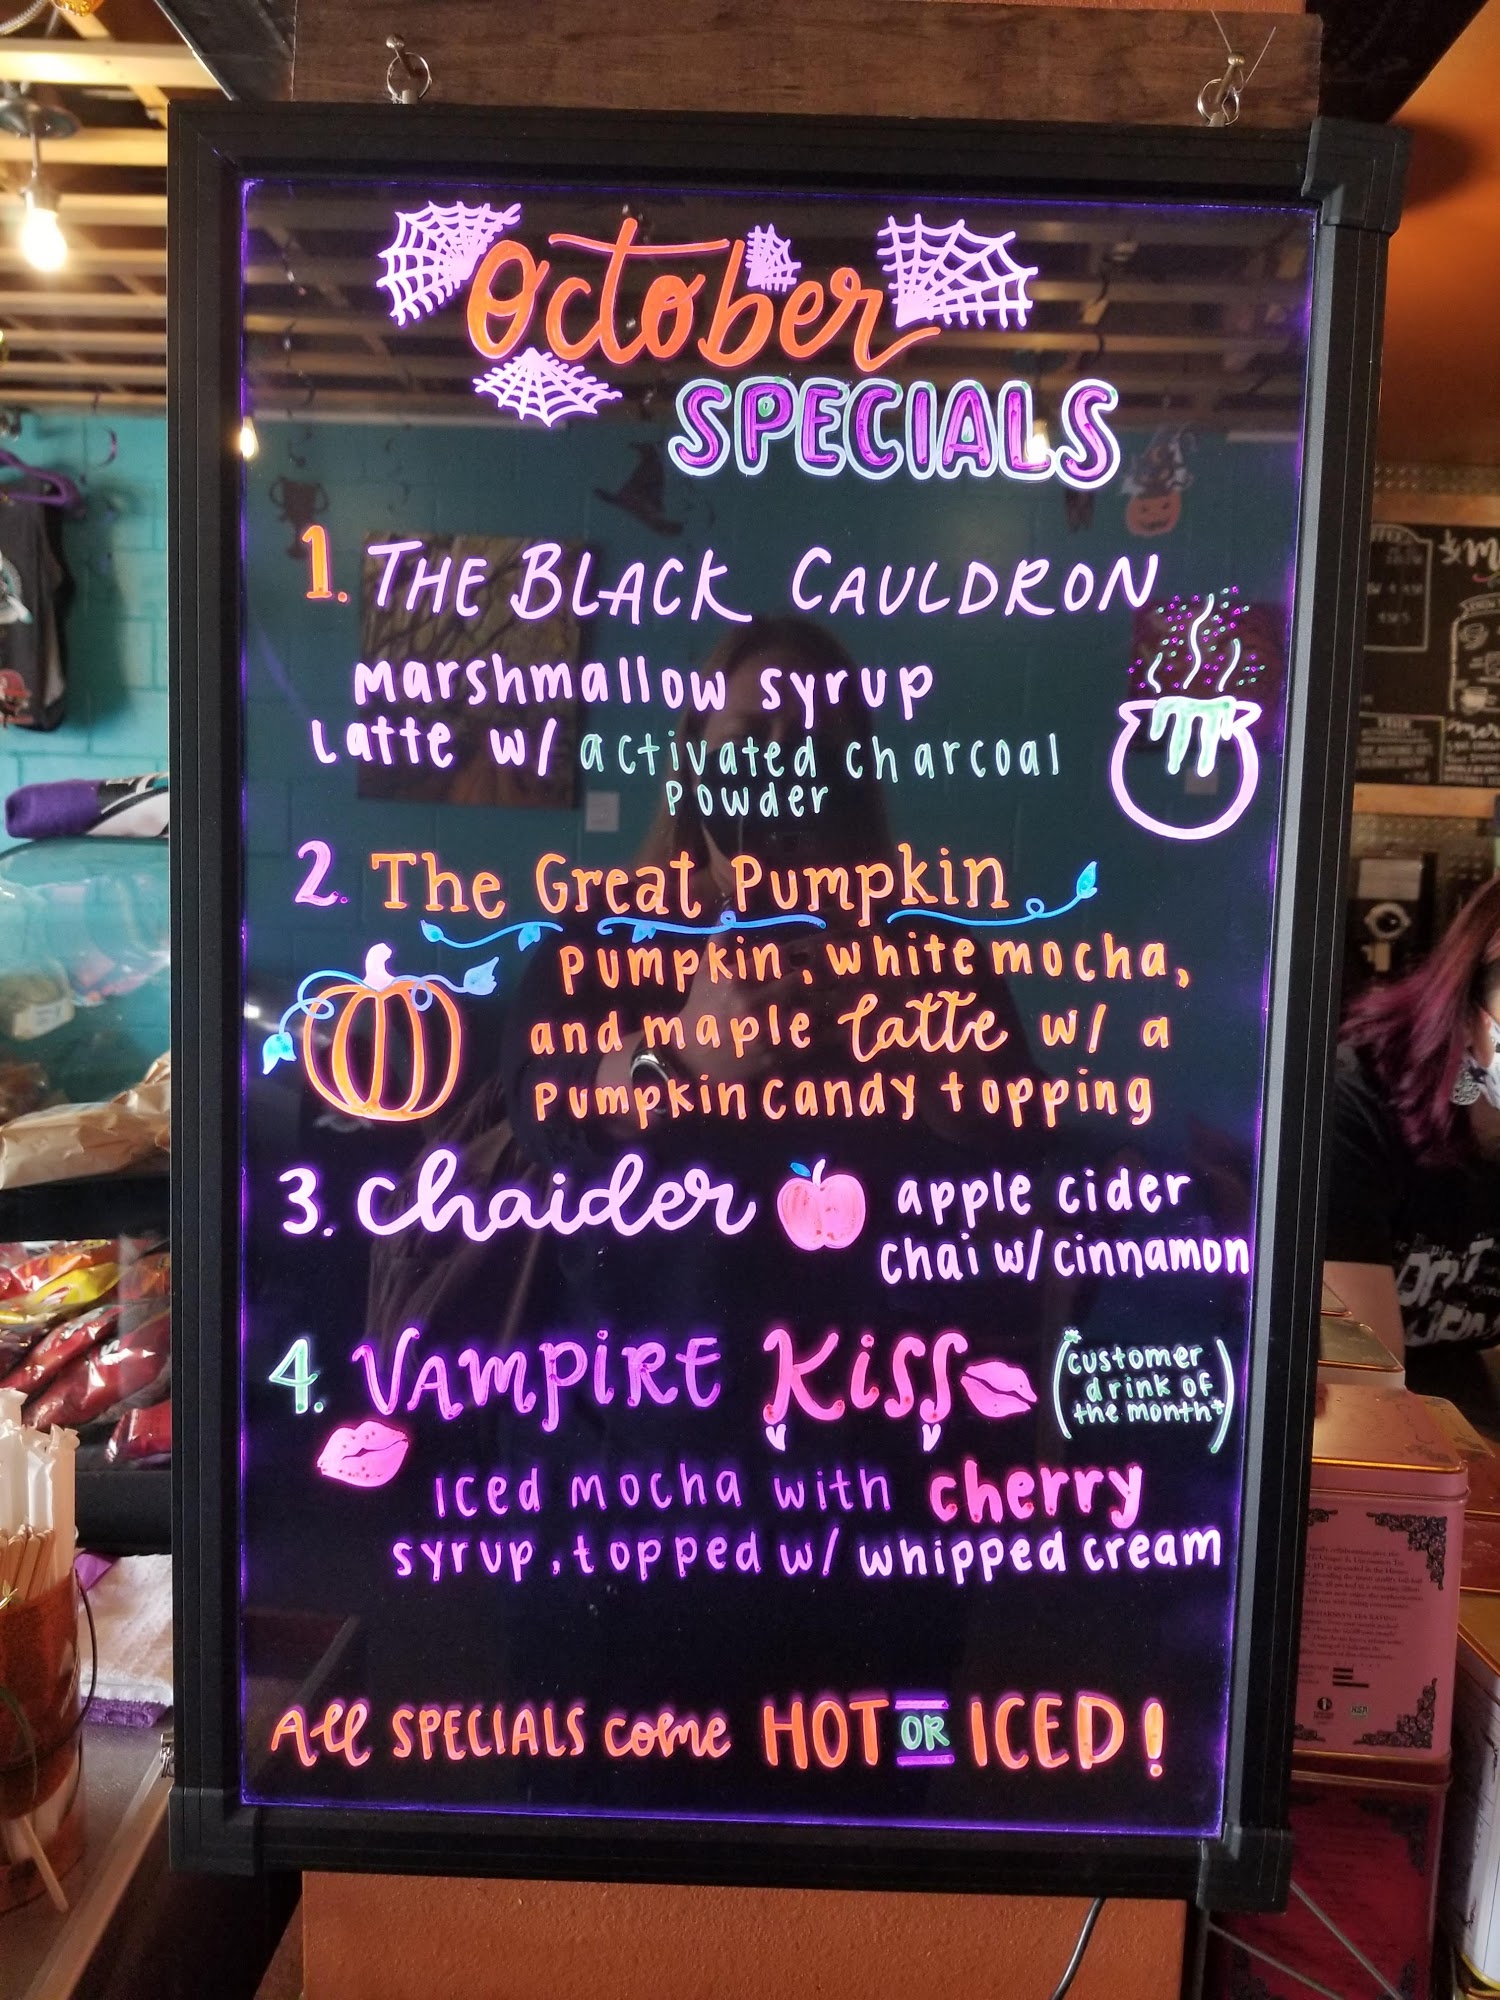 October
SPECIALS
1. THE BLACK CAULDRON
Marshmallow syrup
Latte w/ activated charcoal
Powder
2. The Great Pumpkin
Pumpkin, white mocha,
and maple latte w/ a
Pumpkin candy topping
3. Chaider
apple cider
chai w/ cinnamon
4. VAMPIRE KiSS
(*customer
drink of
the month*)
Iced mocha with cherry
syrup, topped w/ whipped cream
All SPECIALS come HOT OR ICED!